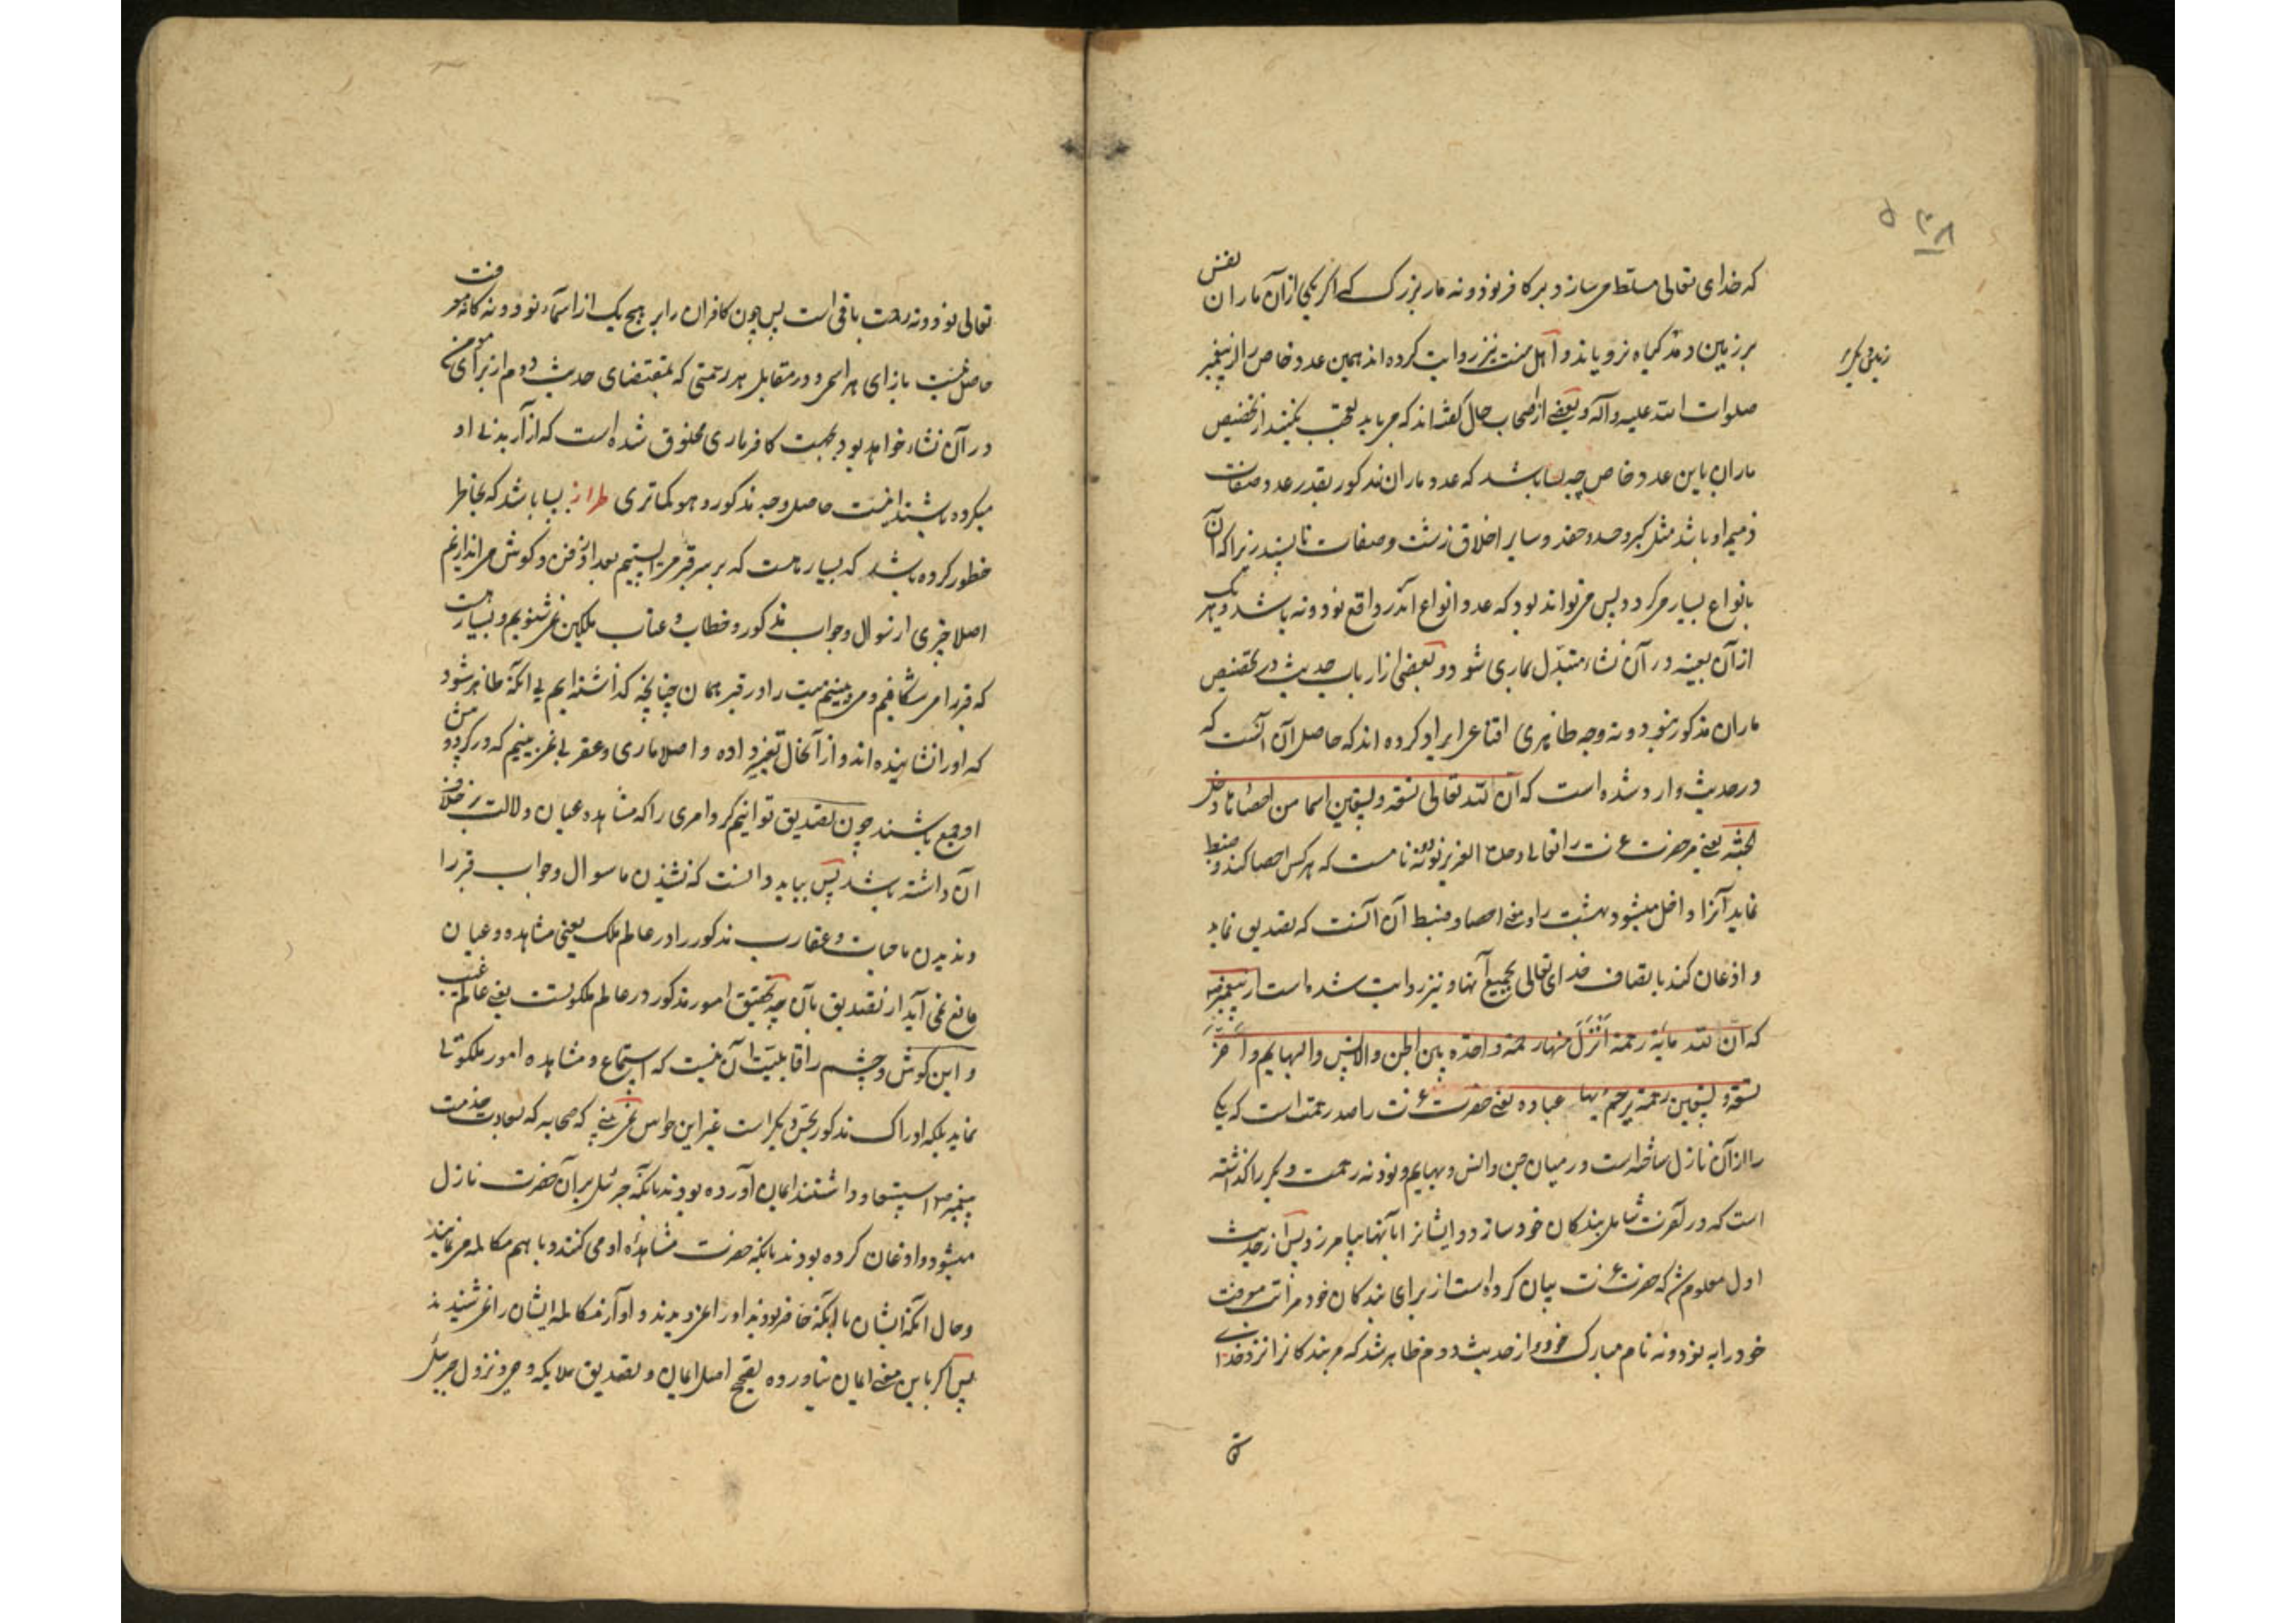 که خدای تعالی مسلط می‌سازد بر کافر نود و نه مار بزرگ که اگر یکی از آن ماران نفس
بر زمین دمد گیاه نرویاند و اهل سنت نیز روایت کرده‌اند همین عدد خاص را از پیغمبر
صلوات الله علیه وآله و بعضی از اصحاب حال گفته‌اند که می‌باید تعجب نکنید از تخصیص
ماران باین عدد خاص چه بسا باشد که عدد ماران مذکور بقدر عدد صفات
ذمیمه او باشد مثل کبر و حسد و حقد و سایر اخلاق زشت و صفات ناپسند زیرا که آن
بانواع بسیار میگردد پس می‌تواند بود که عدد انواع آن در واقع نود و نه باشد و هر یک
از آن بعینه در آن نشاء متبدل بماری شود و بعضی از ارباب حدیث در تخصیص
ماران مذکور بنود و نه وجه ظاهری اقناعی ایراد کرده‌اند که حاصل آن آنست که
در حدیث وارد شده است که ان لله تعالی تسعة و تسعین اسما من احصاها دخل
الجنة یعنی مر حضرت عزت را تعالی نود و نه نامست که هر کس احصا کند و ضبط
نماید آنرا داخل میشود بهشت را و معنی احصا و ضبط آن آنست که تصدیق نماید
و اذعان کند باتصاف خدای تعالی بجمیع آنها و نیز روایت شده است از پیغمبر
که ان لله مایة رحمة انزل منها رحمة واحدة بین الجن والانس والبهایم و اخر
تسعة و تسعین رحمة یرحم بها عباده یعنی حضرت عزت را صد رحمت است که یکی
را از آن نازل ساخته است در میان جن و انس و بهایم و نود و نه رحمت دیگر را گذاشته
است که در آخرت شامل بندگان خود سازد و ایشانرا بآنها بیامرزد پس از حدیث
اول معلوم شد که حضرت عزت بیان کرده است از برای بندگان خود مراتب معرفت
خود را به نود و نه نام مبارک خود و از حدیث دوم ظاهر شد که مر بندگانرا نزد خدای
تعالی نود و نه رحمت باقی است پس چون کافران را بر هیچ یک از اسماء نود و نه گانه معرفت
حاصل نیست بازای هر اسمی و در مقابل هر رحمتی که بمقتضای حدیث دوم از برای مومن
در آن نشاء خواهد بود بجهت کافر ماری مخلوق شده است که از آن بدنی او
میگزیده باشند اینست حاصل وجه مذکور و هو کما تری طراز بسا باشد که بخاطر
خطور کرده باشد که بسیار هست که بر سر قبر می‌ایستیم بعد از دفن و گوش می‌اندازیم
اصلا چیزی از سوال و جواب مذکور و خطاب و عتاب ملکین نمی‌شنویم و بسیار هست
که قبر را می‌شکافیم و می‌بینیم میت را در قبر همان چنانچه گذاشته‌ایم بی آنکه ظاهر شود
که او را نشانیده‌اند و از آنحال تغییر داده و اصلا ماری و عقربی نمی‌بینیم که در گرد
او جمع باشند چون تصدیق توانیم کرد امری را که مشاهده و عیان دلالت بر خلاف
آن داشته باشد پس بباید دانست که نشنیدن ما سوال و جواب قبر را
و ندیدن ما حیات و عقارب مذکور را در عالم ملک یعنی مشاهده و عیان
مانع نمی‌آید از تصدیق بآن چه تحقیق امور مذکور در عالم ملکوتست یعنی عالم غیب
و این گوش و چشم را قابلیت آن نیست که استماع و مشاهده امور ملکوتی
نماید بلکه ادراک مذکور بحس دیگر است غیر این حواس نمی‌بینی که صحابه که سعادت خدمت
پیغمبر داشتند ایمان آورده بودند بآنکه جبرئیل بر آن حضرت نازل
میشود و اذعان کرده بودند بآنکه حضرت مشاهده او می‌کنند و با هم مکالمه می‌نمایند
و حال آنکه ایشان با آنکه حاضر بودند او را نمی‌دیدند و آواز مکالمه ایشان را نمی‌شنیدند
پس اگر باین معنی ایمان نیاورده تصحیح اصل ایمان و تصدیق ملایکه و وحی و نزول جبرئیل